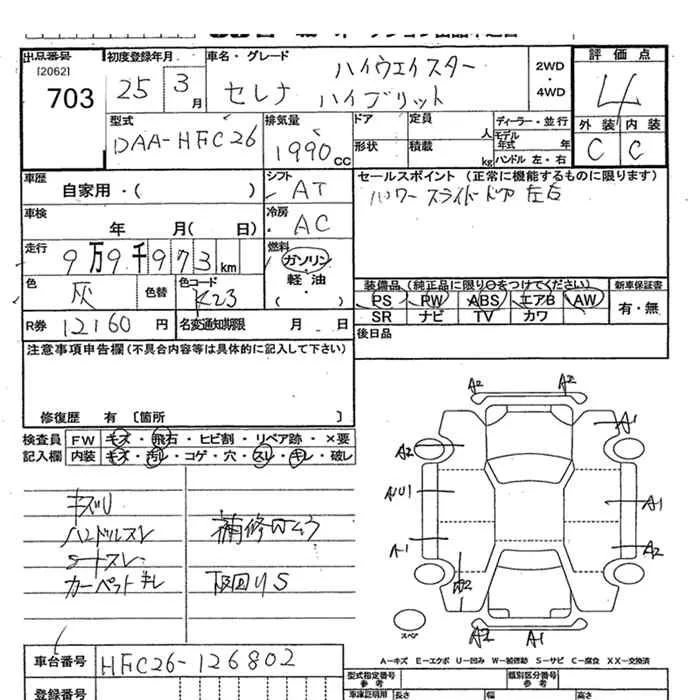 出品番号
[2062]
703
初度登録年月
25 3 月
車名・グレード
ハイウェイスター
セレナ ハイブリット
2WD
・
4WD
評価点
4
外装 内装
C C
型式
DAA-HFC26
排気量
1990 cc
ドア
定員 人
形状
積載 kg
ディーラー・並行
モデル年式 年
ハンドル 左・右
車歴
自家用・( )
シフト
AT
車検
年 月( 日)
冷房
AC
走行
9万9千973km
燃料
ガソリン・軽油・( )
色
灰
色替
色コード
K23
R券 12160 円
名変通知期限 月 日
セールスポイント (正常に機能するものに限ります)
パワースライドドア 左右
装備品 (純正品に限り○をつけてください)
PS PW ABS エアB AW
SR ナビ TV カワ
新車保証書
有・無
後日品
注意事項申告欄(不具合内容等は具体的に記入して下さい)
修復歴 有 〔箇所 〕
検査員記入欄
FW キズ・飛石・ヒビ割・リペア跡・×要
内装 キズ・汚レ・コゲ・穴・スレ・キレ・破レ
キズU
ハンドルスレ
シートスレ
カーペットキレ
補修
下回りS
A2 A2
A1
A2
A1
A1
A2
A2 A1
スペア
A-キズ E-エクボ U-凹み W-補修跡 S-サビ C-腐食 XX-交換済
車台番号 HFC26-126802
登録番号
型式指定番号
参考
類別区分番号
参考
車庫証明用
長さ
幅
高さ